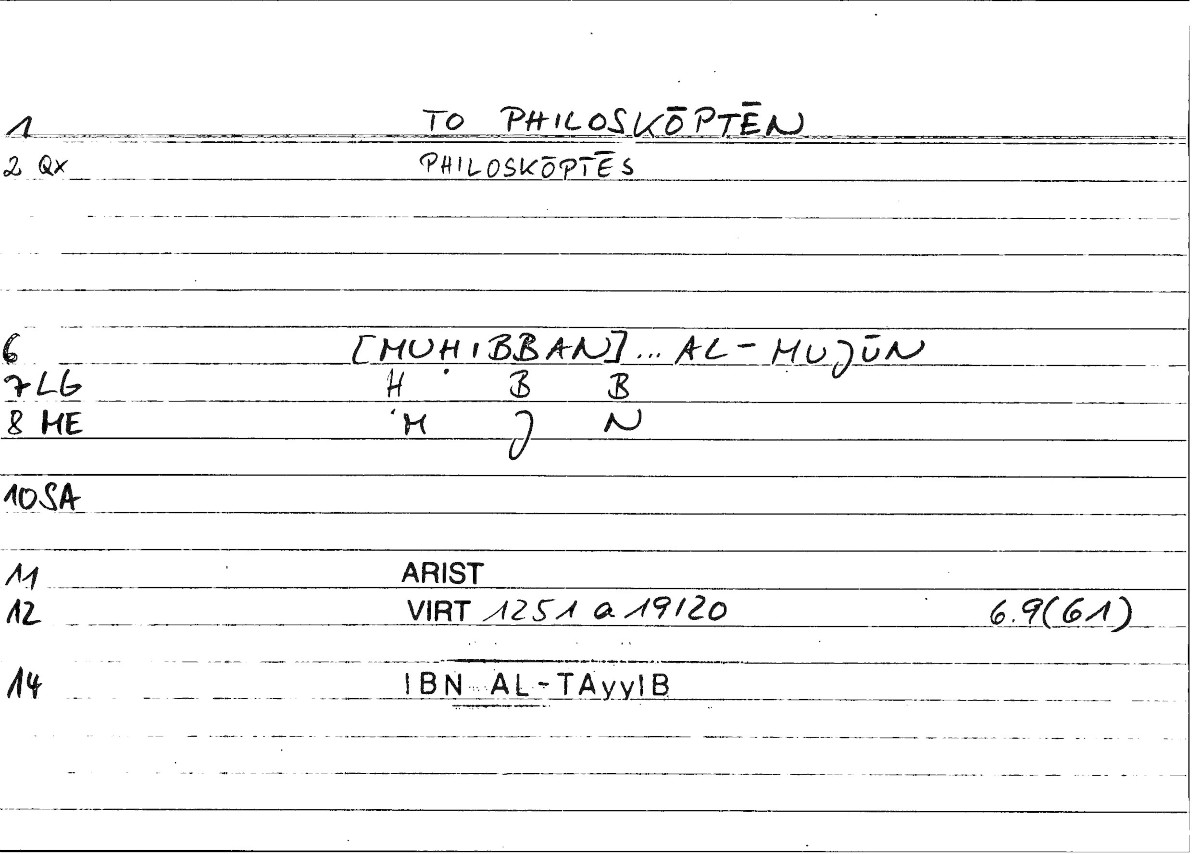 1 TO PHILOSKŌPTĒN
2 QX PHILOSKŌPTĒS
6 [MUHIBBAN]... AL-MUJŪN
7 LG Ḥ B B
8 ME M J N
10 SA
11 ARIST
12 VIRT 1251 a 19/20 6.9(61)
14 IBN AL-TAyyIB